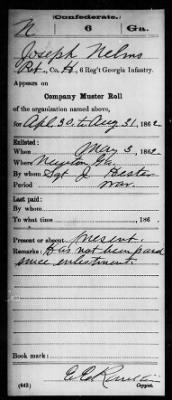 Confederate.
N 6 Ga.
Joseph Nelms
Pvt., Co. H, 6 Reg't Georgia Infantry.
Appears on
Company Muster Roll
of the organization named above,
for Apl 30, to Aug 31, 1862.
Enlisted:
When May 3, 1862.
Where Newton Ga.
By whom Sgt J Hester
Period war
Last paid:
By whom
To what time , 186 .
Present or absent Present.
Remarks: Has not been paid
since enlistment.
Book mark:
(642) Copyist.